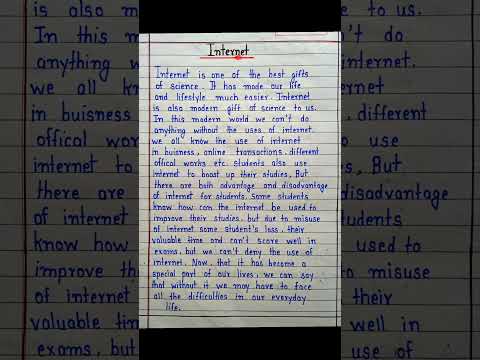 Internet
Internet is one of the best gifts
of science. It has made our life
and lifestyle much easier. Internet
is also modern gift of science to us.
In this modern world we can't do
anything without the uses of internet.
we all know the use of internet
in buisness, online transactions, different
offical works etc. Students also use
internet to boost up their studies, But
there are both advantage and disadvantage
of internet for students. Some students
know how can the internet be used to
improve their studies, but due to misuse
of internet some student's loss, their
valuable time and can't score well in
exams, but we can't deny the use of
internet. Now, that it has become a
special part of our lives, we can say
that without it we may have to face
all the difficulties in our everyday
life.